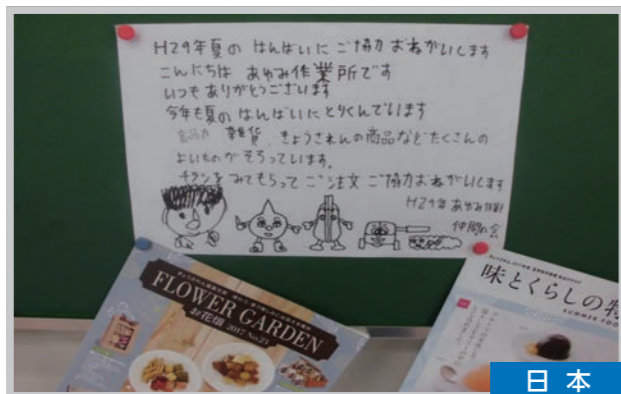 H29年夏の はんばいに ご協力 おねがいします
こんにちは あゆみ作業所です
いつも ありがとうございます
今年も夏の はんばいにとりくんでいます
食品や 雑貨、きょうされんの商品などたくさんの
よいものが そろっています。
チラシを みてもらって ご注文 ご協力 おねがいします
H29年 あゆみ作業所
仲間の会
FLOWER GARDEN
お花畑 2017 No.23
味とくらしの特
SUMMER FOO
日本